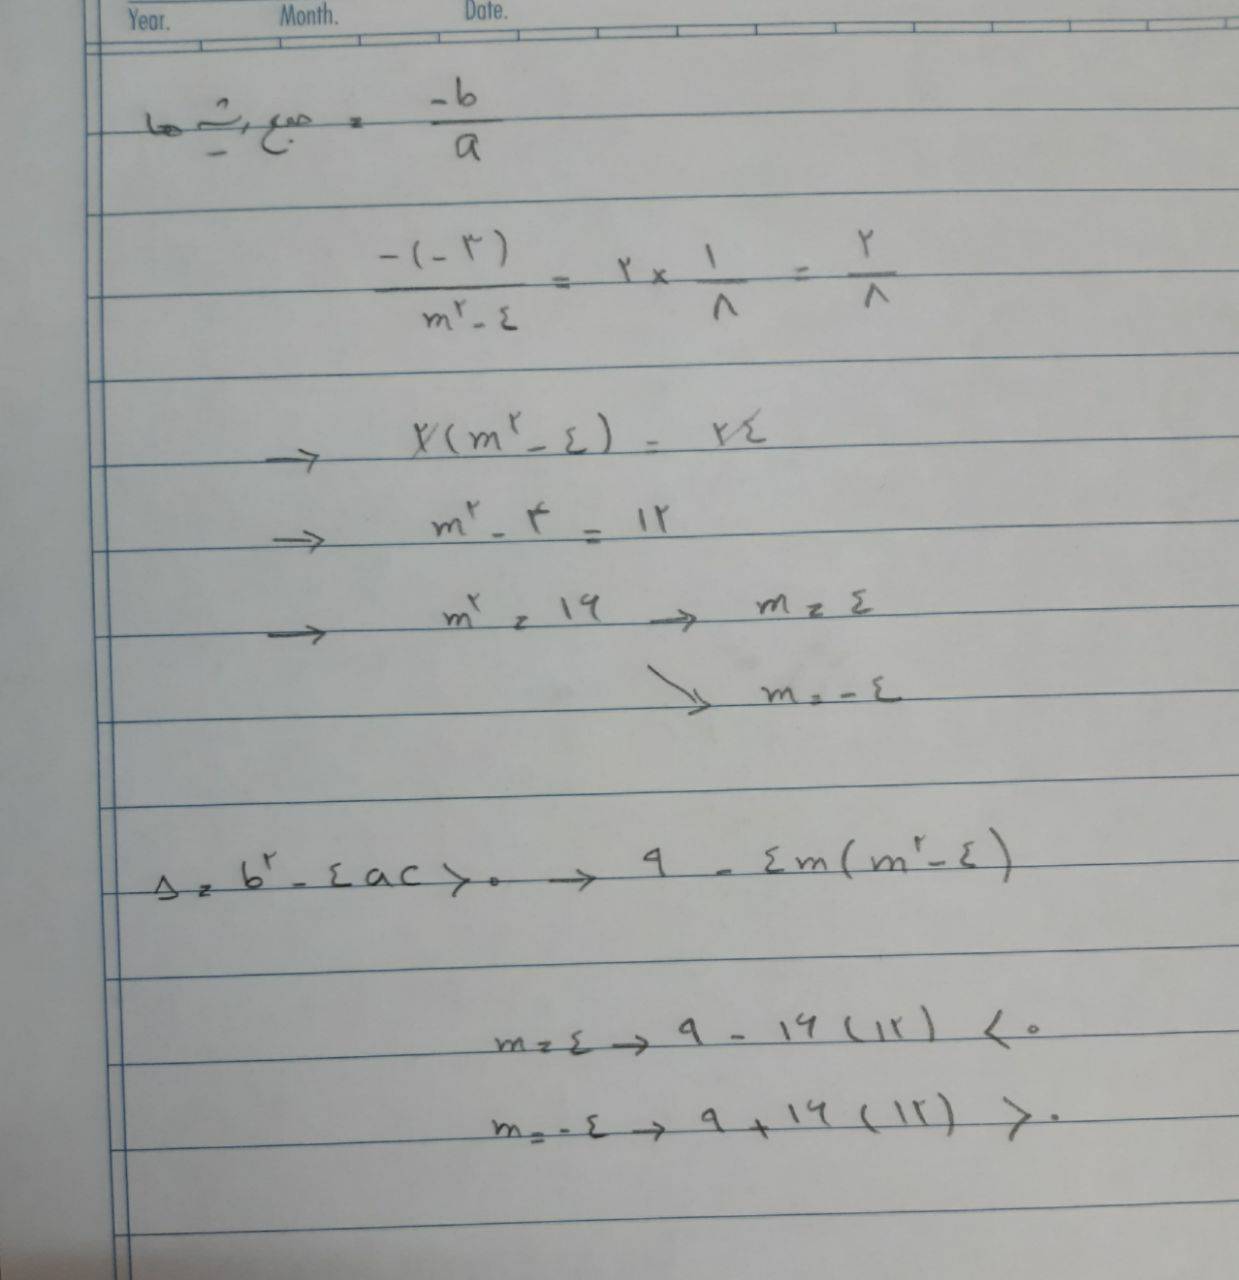 Year. Month. Date.
جمع ریشه ها = -b/a
-(-۳)/(m۲-٤) = ۲ × ۱/۸ = ۲/۸
→ ۲(m۲-٤) = ۲٤
→ m۲ - ۴ = ۱۲
→ m۲ = ۱۶ → m = ٤
↘ m = -٤
Δ = b۲ - ٤ac > ۰ → ۹ - ٤m(m۲-٤)
m = ٤ → ۹ - ۱۶(۱۲) < ۰
m = -٤ → ۹ + ۱۶(۱۲) > ۰